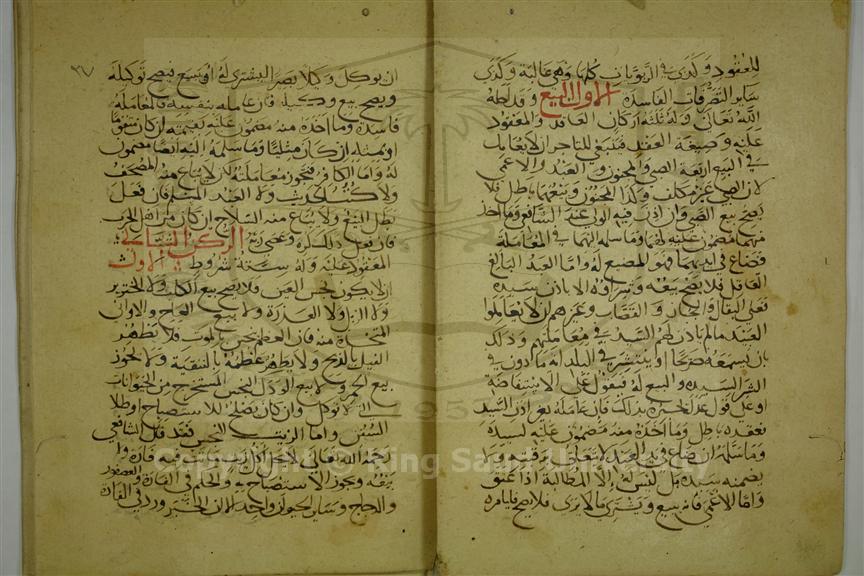 للعقود وكذى في الربويات كلها وهي غالبة وكذى
سائر التصرفات الفاسدة الاول البيع وقد احله
الله تعالى وله ثلثة اركان العاقد والمعقود
عليه وصيغة العقد فينبغي للتاجر ان لا يعامل
في البيع اربعة الصبي والمجنون والعبد والاعمى
لان الصبي غير مكلف وكذا المجنون وبيعهما باطل فلا
يصح بيع الصبي وان اذن فيه الولي عند الشافعي وما اخذ
منهما مضمون عليه لهما وما سلمه اليهما في المعاملة
فضاع في ايديهما فهو المضيع له واما العبد البالغ
العاقل فلا يصح بيعه وشراؤه الا باذن سيده
فعلى البقال والخباز والقصاب وغيرهم ان لا يعاملوا
العبيد مالم ياذن لهم السيد في معاملتهم وذلك
بان يسمعه صريحا او ينتشر في البلد انه ماذون في
الشرا لسيده والبيع له فيعول على الاستفاضة
او على قول عدل يخبره بذلك فان عامله بغير اذن السيد
فعقده باطل وما اخذه منه مضمون عليه لسيده
وما سلمه ان ضاع في يد العبد لا يتعلق برقبته ولا
يضمنه سيده بل ليس له الا المطالبة اذا عتق
واما الاعمى فانه يبيع ويشتري ما لا يرى فلا يصح فليامره
٢٧
ان يوكل وكيلا بصيرا ليشتري له او يبيع فيصح توكيله
ويصح بيع وكيله فان عامله بنفسه فالمعاملة
فاسدة وما اخذه منه مضمون عليه بقيمته ان كان متقوما
او بمثله ان كان مثليا وما سلمه اليه ايضا مضمون
له واما الكافر فتجوز معاملته لكن لا يباع منه المصحف
ولا كتب الحديث ولا العبد المسلم فان فعل
بطل البيع ولا يباع منه السلاح ان كان من اهل الحرب
فان فعل ذلك كره وعصى ربه الركن الثاني
المعقود عليه وله ستة شروط الاول
ان لا يكون نجس العين فلا يصح بيع الكلب والخنزير
ولا الزبل ولا العذرة ولا بيع العاج والاواني
المتخذة منه فان العظم نجس بالموت فلا يطهر
الفيل بالذبح ولا يطهر عظمه بالتنقية ولا يجوز
بيع الخمر ولا بيع الودك النجس المستخرج من الحيوانات
التي لا توكل وان كان يصلح للاستصباح او طلا
السفن واما الزيت النجس فقد قال الشافعي
رحمه الله تعالى لا يجوز اذا وقعت فيه فارة وا
يرقه ويجوز الاستصباح به والحكم في الفارة والعصفور
والدجاج وساير الحيوان واحد لان الخبر ورد في الفارة
Copyright © King Saud University
195